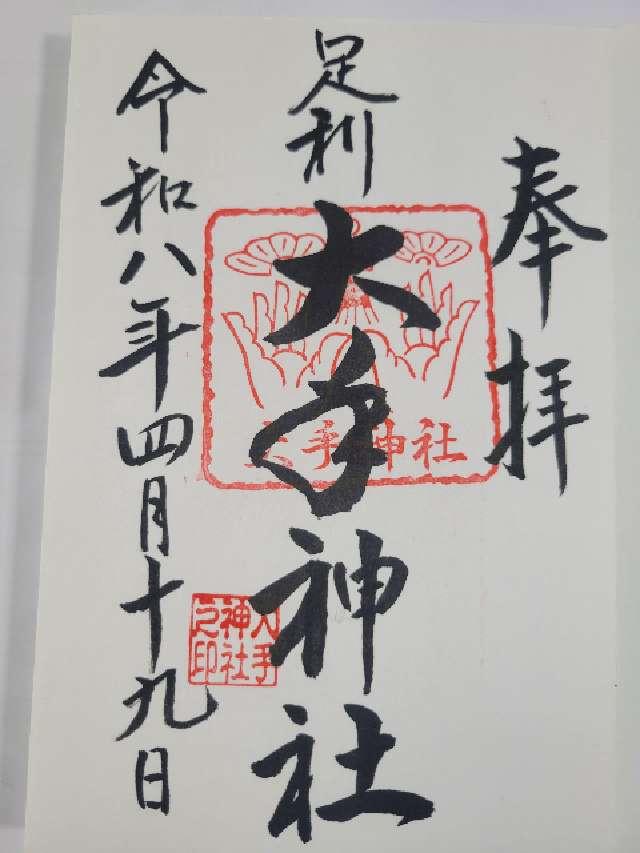 奉拝
足利
大手神社
大手神社
大手神社之印
令和八年四月十九日